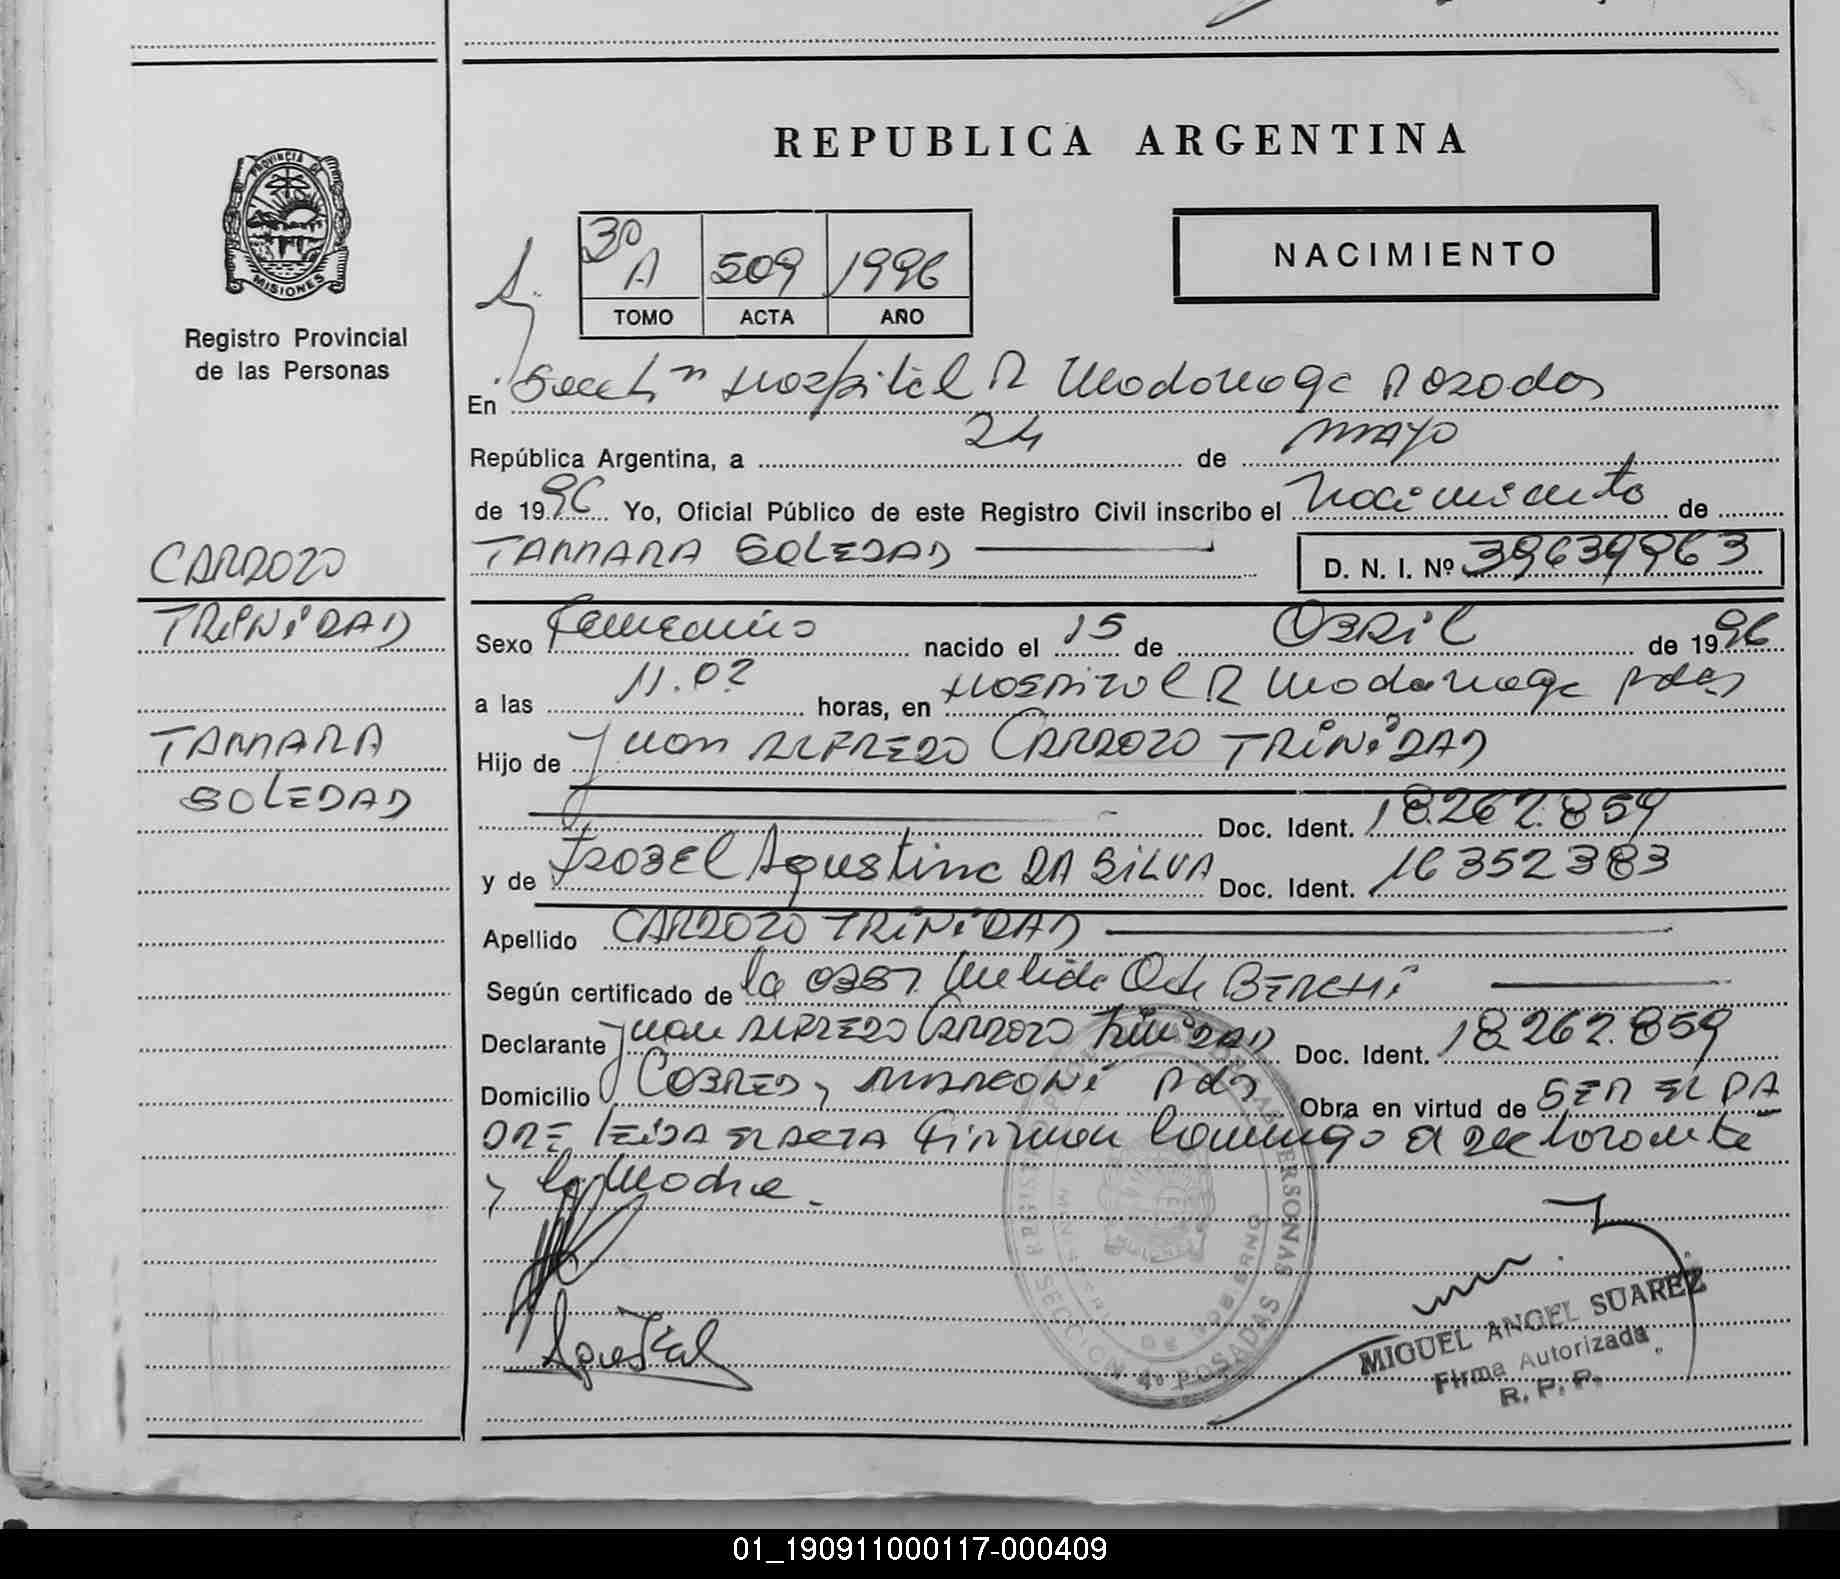 PROVINCIA DE
MISIONES
Registro Provincial
de las Personas
CARDOZO
TRINIDAD
TAMARA
SOLEDAD
REPUBLICA ARGENTINA
3º A 509 1996
TOMO ACTA AÑO
NACIMIENTO
En Secc 4ª Hospital R Madariaga Posadas
República Argentina, a 24 de mayo
de 1996 Yo, Oficial Público de este Registro Civil inscribo el Nacimiento de
TAMARA SOLEDAD D. N. I. Nº 39639963
Sexo Femenino nacido el 15 de Abril de 1996
a las 11.02 horas, en Hospital R Madariaga pdas
Hijo de Juan ALFREDO CARDOZO TRINIDAD
Doc. Ident. 18.262.859
y de Isabel Agustina DA SILVA Doc. Ident. 16352383
Apellido CARDOZO TRINIDAD
Según certificado de la obst
Declarante Juan ALFREDO CARDOZO TRINIDAD Doc. Ident. 18.262.859
Domicilio Cobres y MARCONI pdas Obra en virtud de SER EL PA
DRE LEIDA EL ACTA Firman Conmigo el declarante
y la Madre.
PERSONAS
SECCION 4º POSADAS
DE GOBIERNO
MIGUEL ANGEL SUAREZ
Firma Autorizada
R. P. P.
01_190911000117-000409